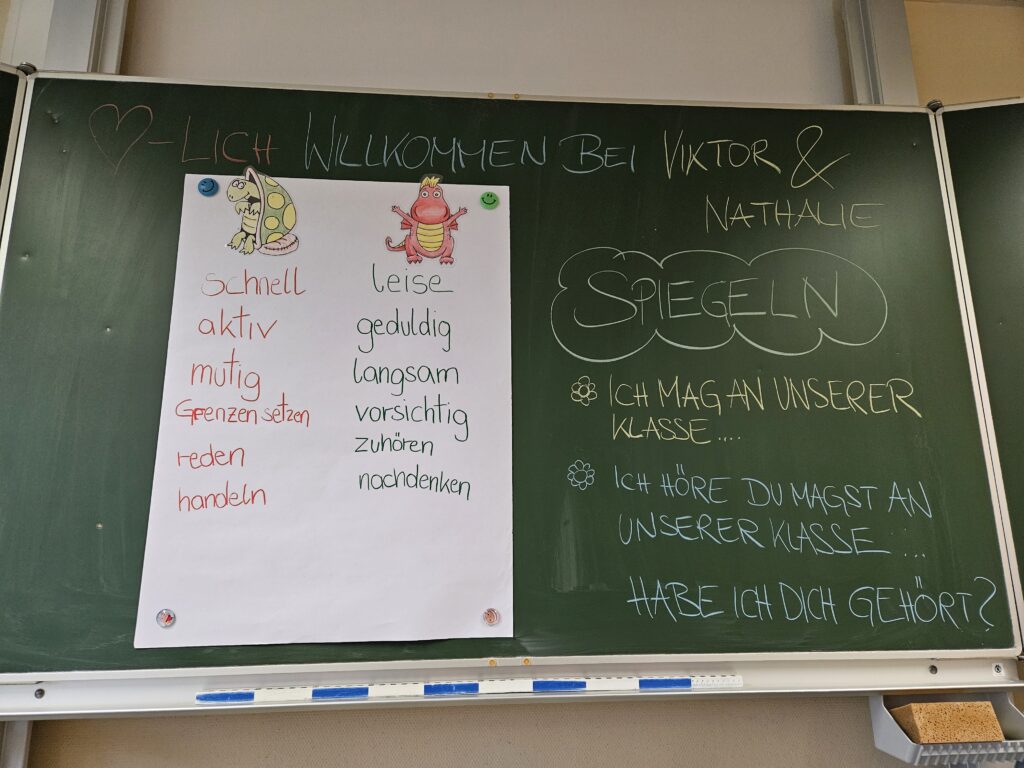 ♡-LICH WILLKOMMEN BEI VIKTOR &
NATHALIE
schnell
aktiv
mutig
Grenzen setzen
reden
handeln
leise
geduldig
langsam
vorsichtig
zuhören
nachdenken
SPIEGELN
ICH MAG AN UNSERER
KLASSE....
ICH HÖRE DU MAGST AN
UNSERER KLASSE ...
HABE ICH DICH GEHÖRT?